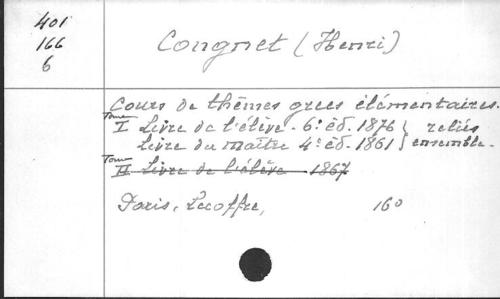 401
166
6
Congnet (Henri)
Cours de thêmes grecs élémentaires.
Tome I Livre de l'élève. 6e éd. 1876 } reliés
Livre du maître 4e éd. 1861 } ensemble.
Tome II Livre de l'élève 1867
Paris, Lecoffre, 16o